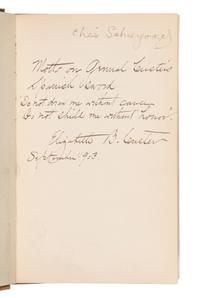 Motto on General Custer's
Spanish Sword
"Do not draw me without cause
Do not sheath me without honor".
Elizabeth B. Custer
September 1913